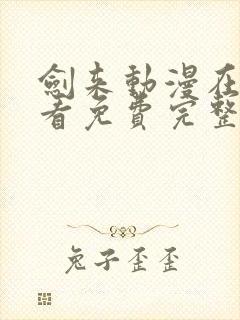 劍來動漫在
看免費完整
兔子歪歪